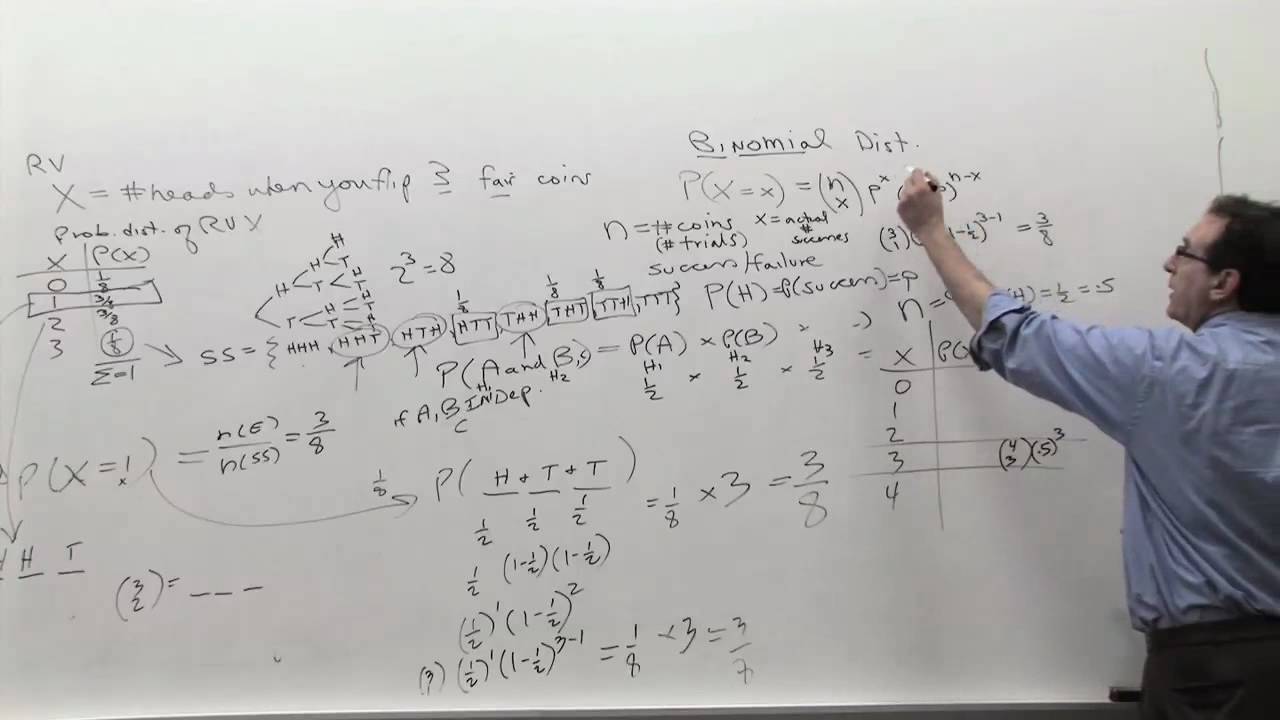 RV
X = # heads when you flip 3 fair coins
Prob. dist. of RV X
X P(X)
0 1/8
1 3/8
2 3/8
3 1/8
Σ=1
2³ = 8
H
H T
H T H T
T H T
SS = { HHH, HHT, HTH, HTT, THH, THT, TTH, TTT }
1/8 1/8 1/8
P(A and B,) = P(A) × P(B)
H₁ H₂
if A, B INDep.
C
H₁ H₂ H₃
1/2 × 1/2 × 1/2 =
P(X=1) = n(E)/n(SS) = 3/8
x
1/8
P( H + T + T ) = 1/8 × 3 = 3/8
1/2 1/2 1/2
1/2 (1-1/2)(1-1/2)
(1/2)¹ (1-1/2)²
(3) (1/2)¹ (1-1/2)³⁻¹ = 1/8 × 3 = 3/7
H T
(3 2) = _ _ _
Binomial Dist.
P(X = x) = (n x) p^x ( )^n-x
n = # coins
(# trials)
x = actual
#
succeses
(3 1) 1-1/2)³⁻¹ = 3/8
success/failure
P(H) = P(success) = p
n = (H) = 1/2 = .5
X P(X
0
1
2
3 (4 3)(.5)³
4